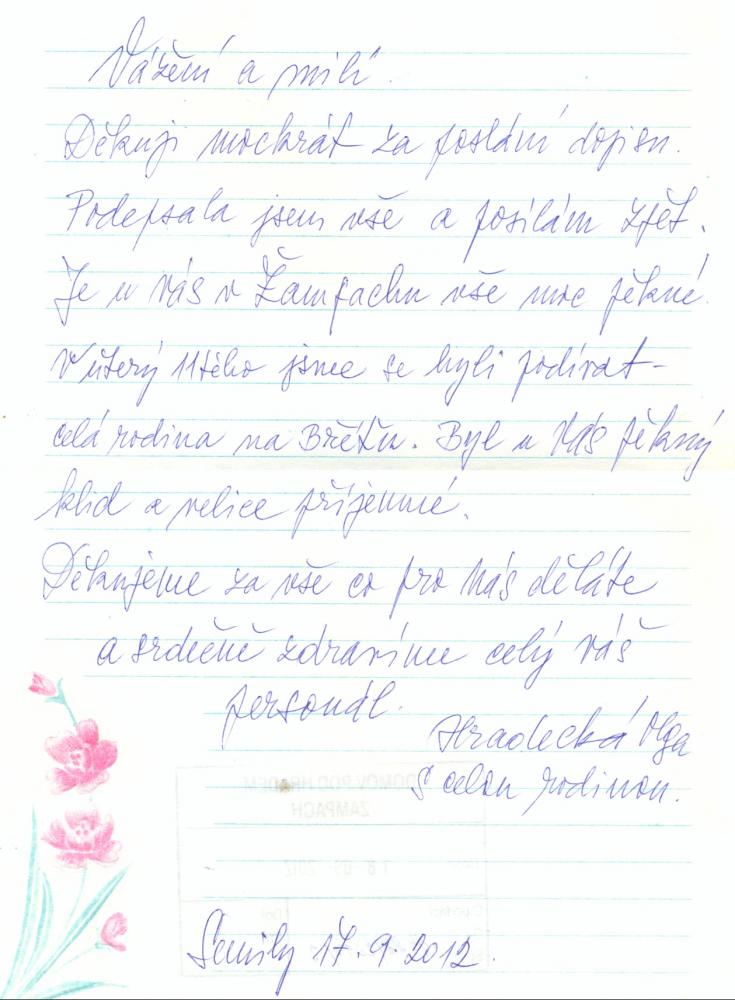 Vážení a milí.
Děkuji mockrát za poslání dopisu.
Podepsala jsem vše a posílám zpět.
Je u vás v Žampachu vše moc pěkné.
V úterý 11tého jsme se byli podívat –
celá rodina na Břéťu. Byl u Vás pěkný
klid a velice příjemné.
Děkujeme za vše co pro Nás děláte
a srdečně zdravíme celý váš
personál.
Hradecká Olga
S celou rodinou.
DOMOV POD HRADEM
ŽAMPACH
18 -09- 2012
Semily 17.9.2012.